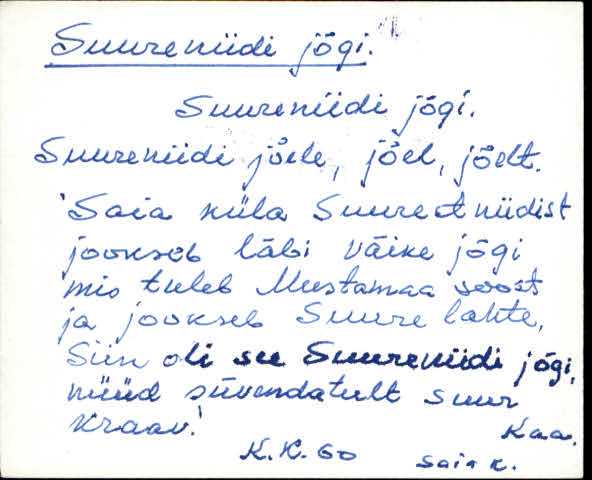 Suureniidi jõgi.
Suureniidi jõgi.
Suureniidi jõele, jõel, jõelt.
'Saia küla Suurest niidist
jookseb läbi väike jõgi
mis tuleb Mustamaa soost
ja jookseb Suure lahte,
Siin oli see Suureniidi jõgi,
nüüd süvendatult suur
kraav.'
Kaa.
K.K. 60
Saia k.